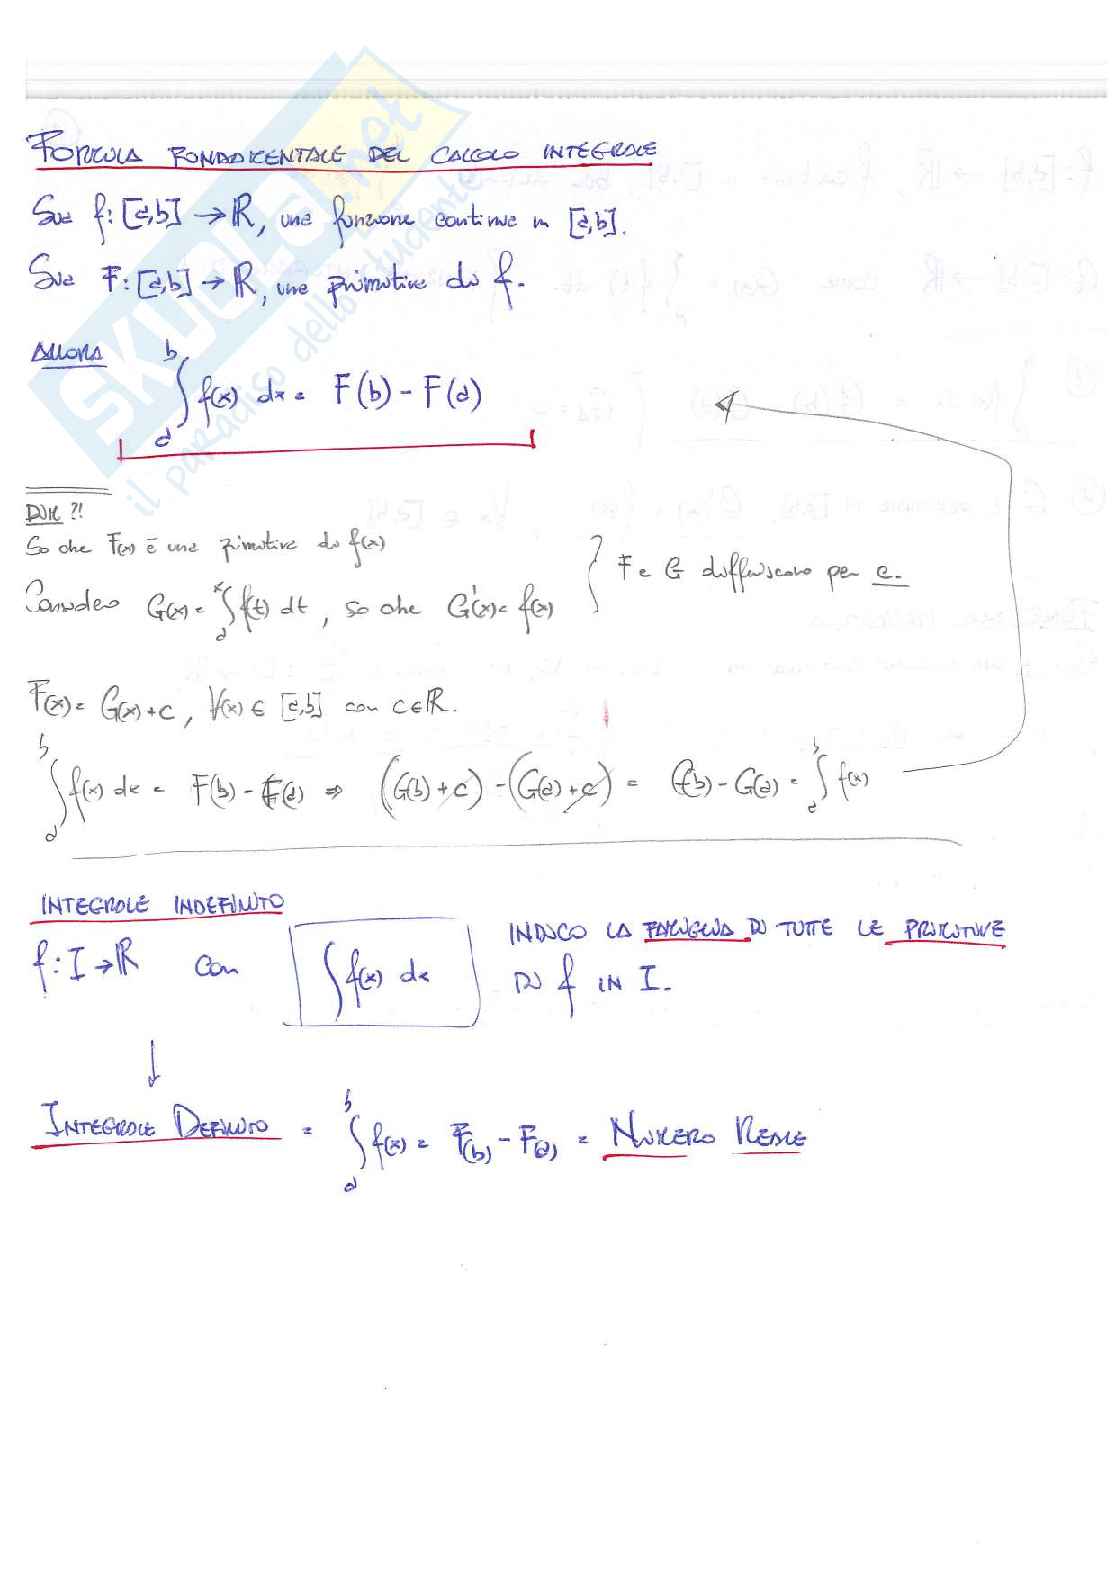 FORMULA FONDAMENTALE DEL CALCOLO INTEGRALE
Sia f: [a,b] → ℝ, una funzione continua in [a,b].
Sia F: [a,b] → ℝ, una primitiva di f.
ALLORA ∫_a^b f(x) dx = F(b) - F(a)
DIM ?!
So che F(x) è una primitiva di f(x)
Considero G(x) = ∫_a^x f(t) dt, so che G'(x) = f(x) } F e G differiscono per c.
F(x) = G(x) + c, ∀(x) ∈ [a,b] con c∈ℝ.
∫_a^b f(x) dx = F(b) - F(a) ⇒ (G(b) + c) - (G(a) + c) = G(b) - G(a) = ∫_a^b f(x)
INTEGRALE INDEFINITO
f: I → ℝ con ∫ f(x) dx INDICO LA FAMIGLIA DI TUTTE LE PRIMITIVE
DI f IN I.
↓
INTEGRALE DEFINITO = ∫_a^b f(x) = F(b) - F(a) = NUMERO REALE
SKUOLA.net
il paradiso dello studente